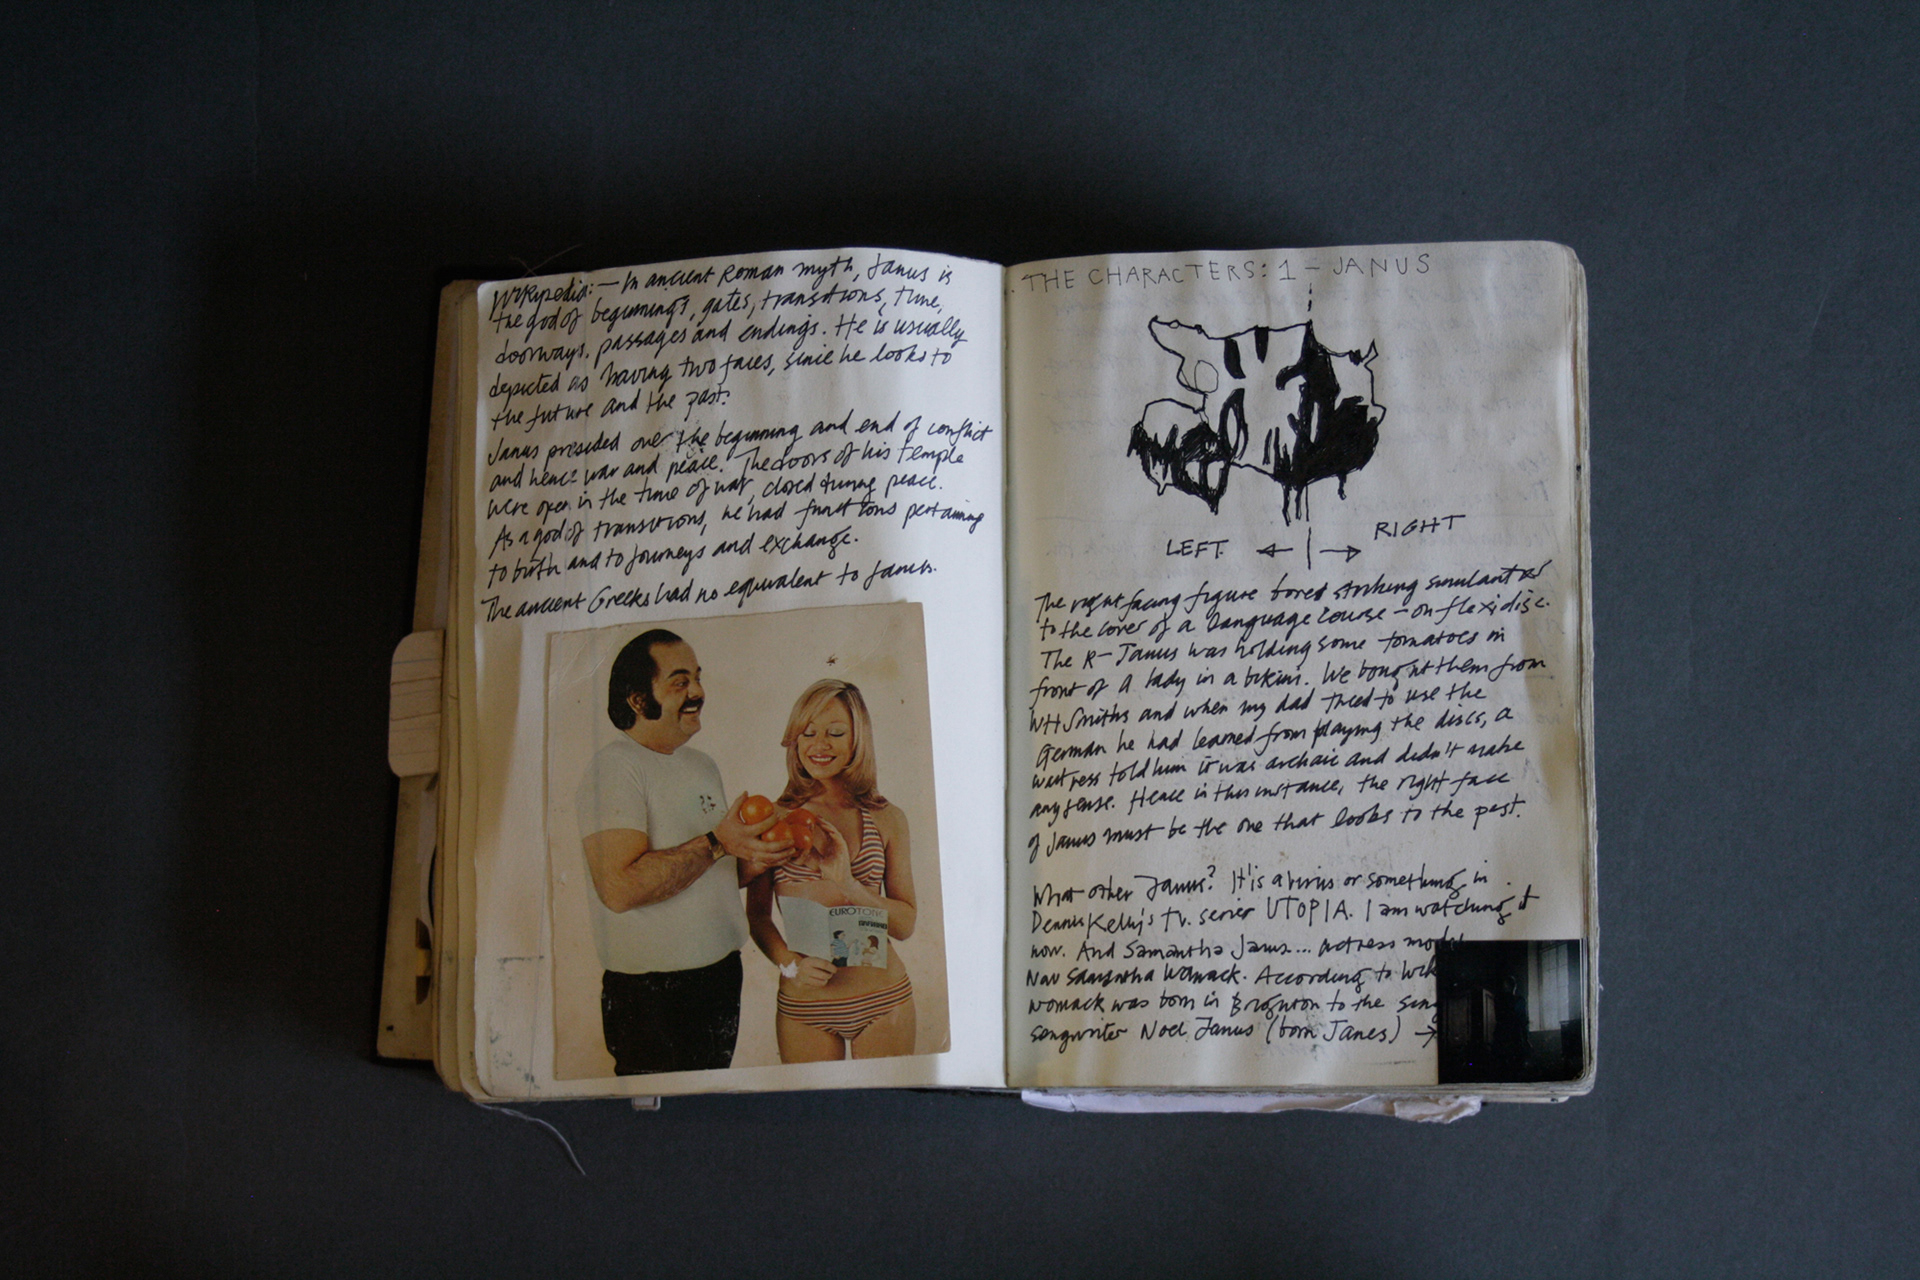 Wikipedia:— In ancient Roman myth, Janus is
the god of beginnings, gates, transitions, time,
doorways, passages and endings. He is usually
depicted as having two faces, since he looks to
the future and the past.
Janus presided over the beginning and end of conflict
and hence war and peace. The doors of his temple
were open in the time of war, closed during peace.
As a god of transitions, he had functions pertaining
to birth and to journeys and exchange.
The ancient Greeks had no equivalent to Janus.
EUROTONE
THE CHARACTERS: 1 – JANUS
LEFT ← | → RIGHT
The right facing figure bores striking simulant
to the cover of a language course – on flexi disc.
The R–Janus was holding some tomatoes in
front of a lady in a bikini. We bought them from
WH Smiths and when my dad tried to use the
German he had learned from playing the discs, a
waitress told him it was archaic and didn't make
any sense. Hence in this instance, the right face
of Janus must be the one that looks to the past.
What other Janus? It is a virus or something in
Dennis Kelly's T.V. series UTOPIA. I am watching it
now. And Samantha Janus... actress model
Nov Samantha Womack. According to Wik
Womack was born in Brighton to the sing
songwriter Noel Janus (born Janes) →